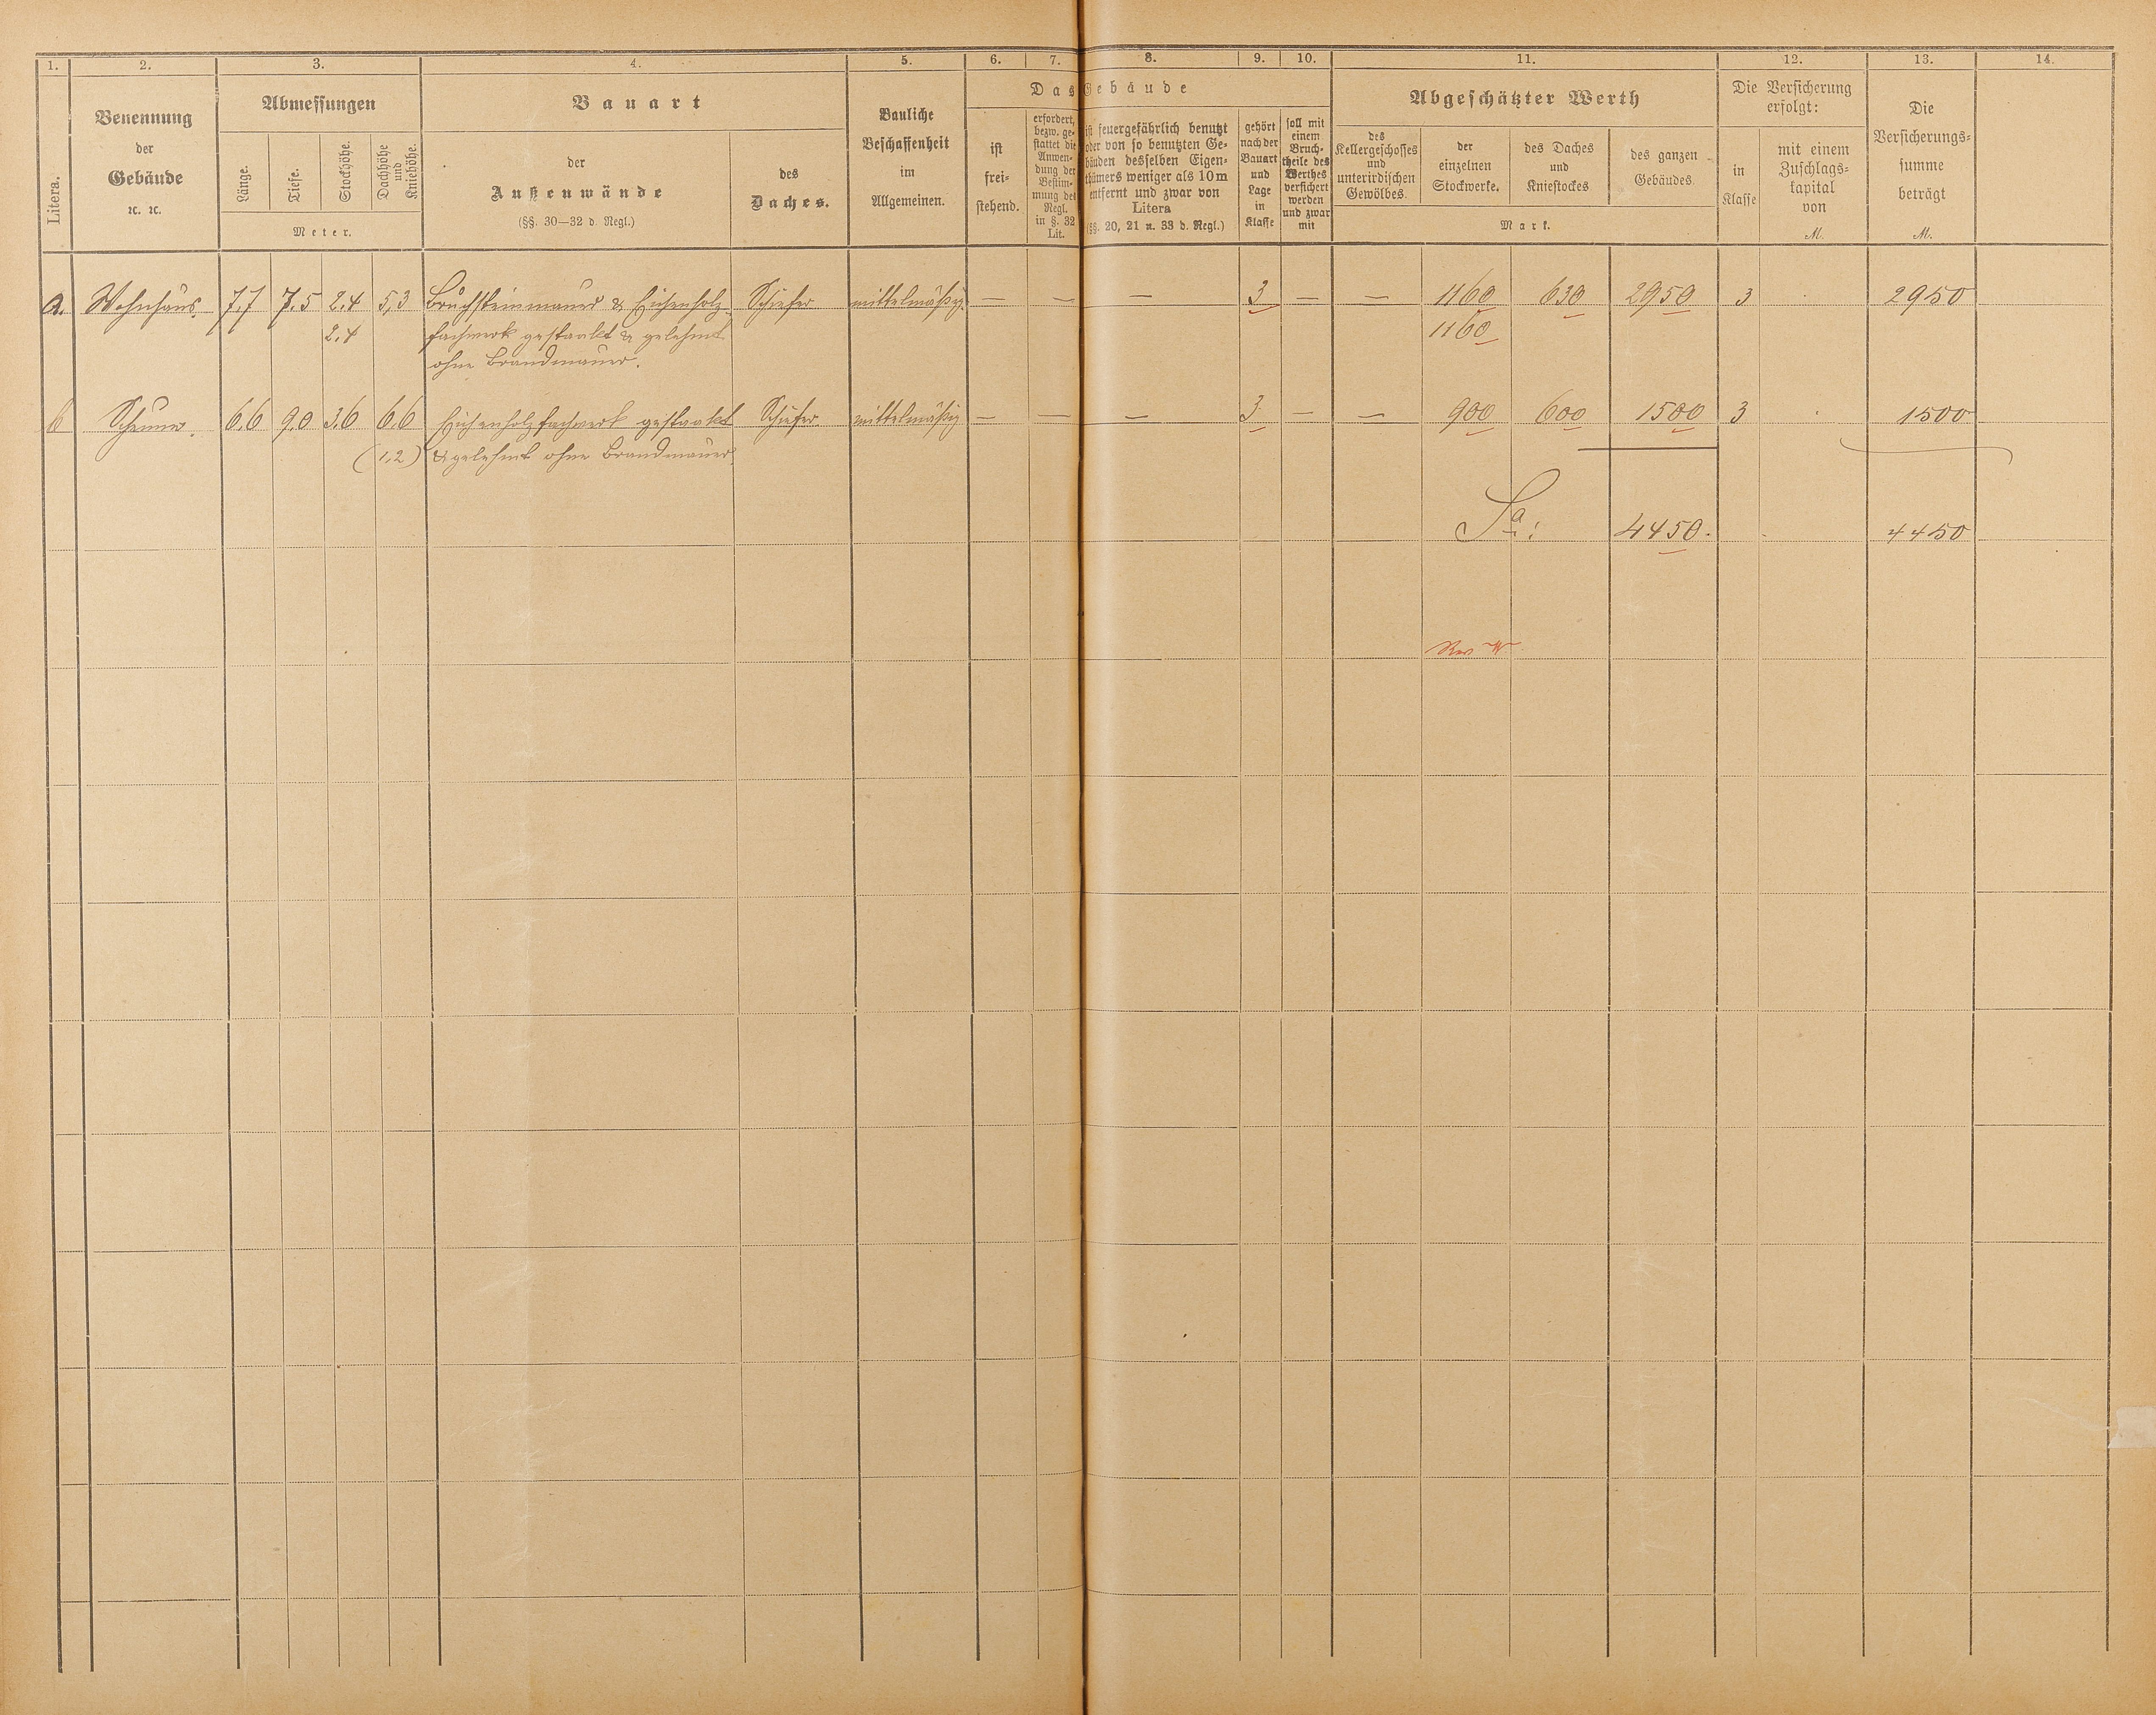 1. 2. 3. 4. 5. 6. 7. 8. 9. 10. 11. 12. 13. 14.
Litera.
Benennung
der
Gebäude
ꝛc. ꝛc.
Abmessungen
Länge.
Tiefe.
Stockhöhe.
Dachhöhe
und
Kniehöhe.
Meter.
Bauart
der
Außenwände
(§§. 30—32 d. Regl.)
des
Daches.
Bauliche
Beschaffenheit
im
Allgemeinen.
Das Gebäude
ist
frei-
stehend.
erfordert,
bezw. ge-
stattet die
Anwen-
dung der
Bestim-
mung des
Regl.
in §. 32
Lit.
ist feuergefährlich benutzt
oder von so benutzten Ge-
bäuden desselben Eigen-
thümers weniger als 10 m
entfernt und zwar von
Litera
(§§. 20, 21 u. 33 d. Regl.)
gehört
nach der
Bauart
und
Lage
in
Klasse
soll mit
einem
Bruch-
theile des
Werthes
versichert
werden
und zwar
mit
Abgeschätzter Werth
des
Kellergeschosses
und
unterirdischen
Gewölbes.
der
einzelnen
Stockwerke.
des Daches
und
Kniestockes
des ganzen
Gebäudes.
Mark.
Die Versicherung
erfolgt:
in
Klasse
mit einem
Zuschlags-
kapital
von
M.
Die
Versicherungs-
summe
beträgt
M.
a. Wohnhaus. 7,7 7,5 2,4 5,3 Bruchsteinmauer & Eichenholz- Schiefer mittelmäßig. — — — 3 — — 1160 630 2950 3 . 2950
2,4 fachwerk gestaakt & gelehmt 1160
ohne Brandmauer.
b Scheune. 6,6 9,0 3,6 6,6 Eichenholzfachwerk gestaakt Schiefer mittelmäßig — — — 3 — — 900 600 1500 3 . 1500
(1,2) & gelehmt ohne Brandmauer.
Sa: 4450. 4450